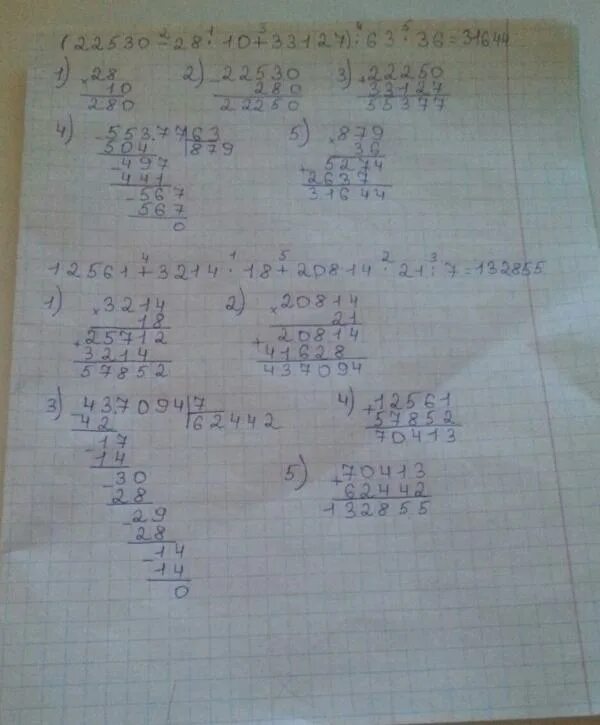 (22530 - 28 · 10 + 33127) : 63 · 36 = 31644
2 1 3 4 5
1) 2) 3)
× 28 - 22530 + 22250
10 280 33127
280 22250 55377
4) 5)
- 55377 63 × 879
504 879 36
- 497 + 5274
441 2637
- 567 31644
567
0
12561 + 3214 · 18 + 20814 · 21 : 7 = 132855
4 1 5 2 3
1) 2)
× 3214 × 20814
18 21
+ 25712 + 20814
3214 41628
57852 437094
3) - 437094 7 4) + 12561
42 62442 57852
- 17 70413
14
- 30 5) + 70413
28 62442
- 29 132855
28
- 14
14
0